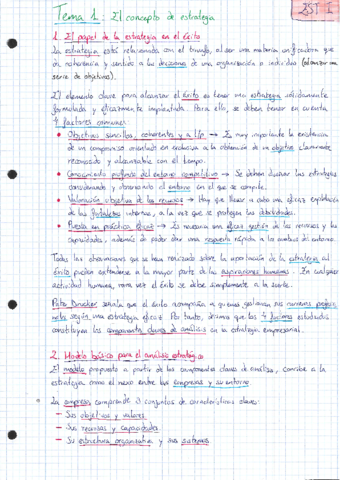 EST I
Tema 1: El concepto de estrategia
1. El papel de la estrategia en el éxito
La estrategia está relacionada con el triunfo, al ser una materia unificadora que
da coherencia y sentido a las decisiones de una organización o individuo (alcanzar una
serie de objetivos).
El elemento clave para alcanzar el éxito es tener una estrategia sólidamente
formulada y eficazmente implantada. Para ello, se deben tener en cuenta
4 factores comunes:
• Objetivos sencillos, coherentes y a L/p → Es muy importante la existencia
de un compromiso orientado en exclusiva a la obtención de un objetivo claramente
reconocido y alcanzable con el tiempo.
• Conocimiento profundo del entorno competitivo → Se deben diseñar las estrategias
considerando y observando el entorno en el que se compite.
• Valoración objetiva de los recursos → Hay que llevar a cabo una eficaz explotación
de las fortalezas internas, a la vez que se protegen las debilidades.
• Puesta en práctica eficaz → Es necesaria una eficaz gestión de los recursos y las
capacidades, además de poder dar una respuesta rápida a los cambios de entorno.
Todas las observaciones que se han realizado sobre la aportación de la estrategia al
éxito pueden extenderse a la mayor parte de las aspiraciones humanas. En cualquier
actividad humana, rara vez el éxito se debe simplemente a la suerte.
Peter Drucker señala que el éxito acompaña a quienes gestionan sus
según una estrategia eficaz. Por tanto, diremos que los 4 factores estudiados
constituyen los componentes claves de análisis en la estrategia empresarial.
2. Modelo básico para el análisis estratégico
El modelo propuesto a partir de los componentes claves de análisis, concibe a la
estrategia como el nexo entre las empresas y su entorno.
La empresa comprende 3 conjuntos de características claves:
— Sus objetivos y valores
— Sus recursos y capacidades
— Su estructura organizativa y sus sistemas